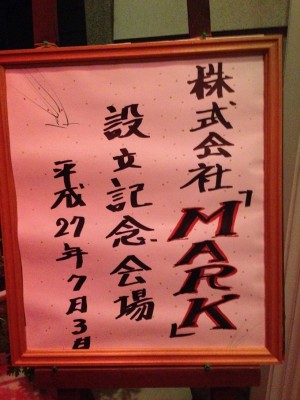 株式会社「MARK」
設立記念会場
平成27年7月3日